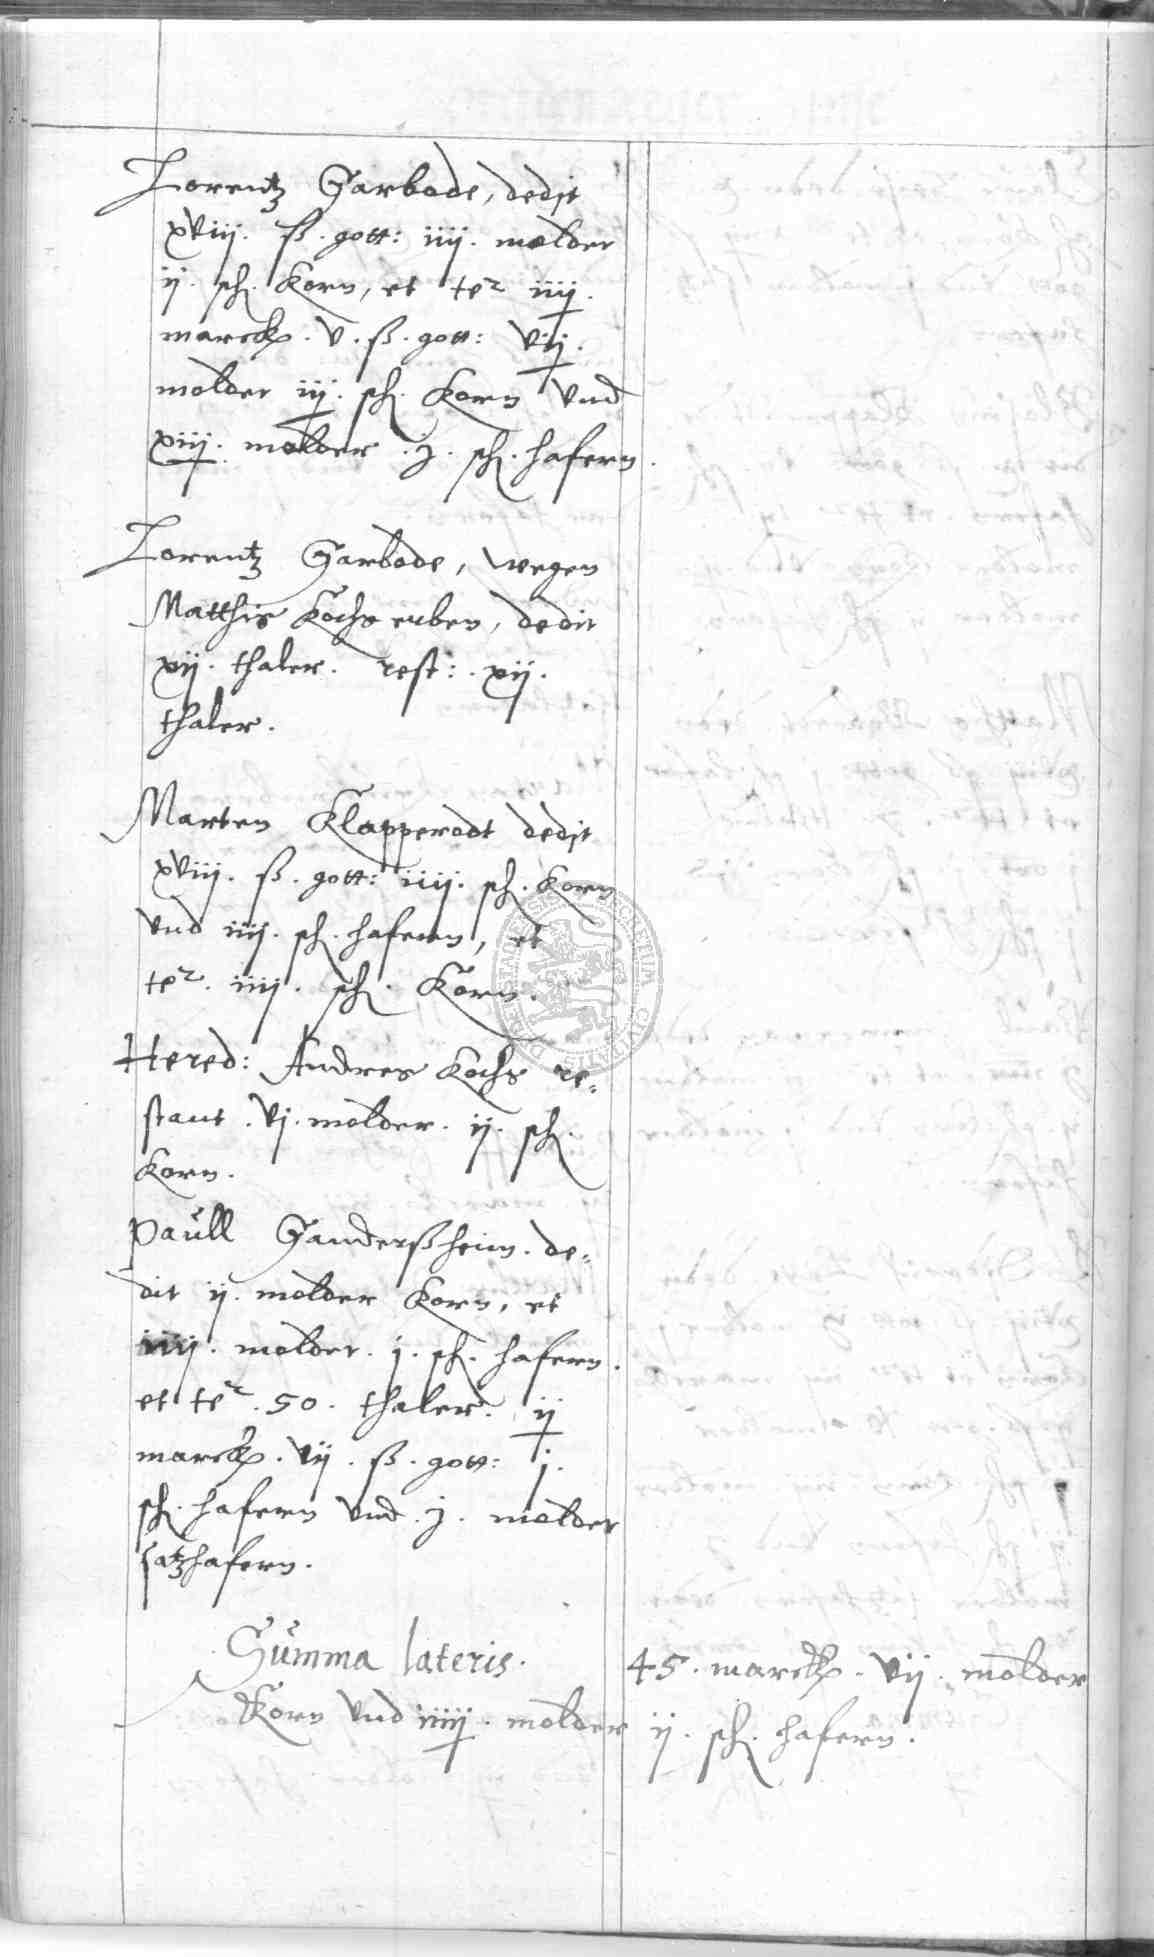 Lorentz Garbode, dedit
xviij. ß. gott: iiij. molder
ij. sch. Korn, et ter iiij.
marck. v. ß. gott: vij.
molder iij. sch. Korn vnd
xiij. molder .j. sch. hafern.
Lorentz Garbode, wegen
Matthis Kochs erben, dedit
xij. thaler. rest: xij.
thaler.
Marten Klapperodt dedit
xviij. ß. gott: iiij. sch. Korn
vnd iiij. sch. hafern, et
ter. iiij. sch. Korn.
Hered: Andres Kochs re=
stant .vj. molder. ij. sch.
Korn.
Paull Ganderßheim. de=
dit ij. molder Korn, et
iiij. molder. j. sch. hafern.
et ter .50. thaler. ij
marck. vij. ß. gott: j.
sch. hafern vnd .j. molder
satzhafern.
Summa lateris. 45. marck. vij. molder
Korn vnd iiij. molder ij. sch. hafern.
SECRETUM CIVITATIS